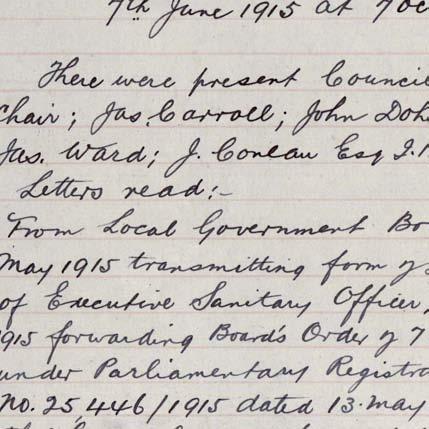 7th June 1915 at 7 oc
There were present Council
Chair; Jas. Carroll; John Doh
Jas. Ward; J. Conlan Esq J.
Letters read:-
From Local Government Bo
May 1915 transmitting form of
of Executive Sanitary Officer,
1915 forwarding Board's Order of 7
under Parliamentary Registra
No. 25,446/1915 dated 13. May